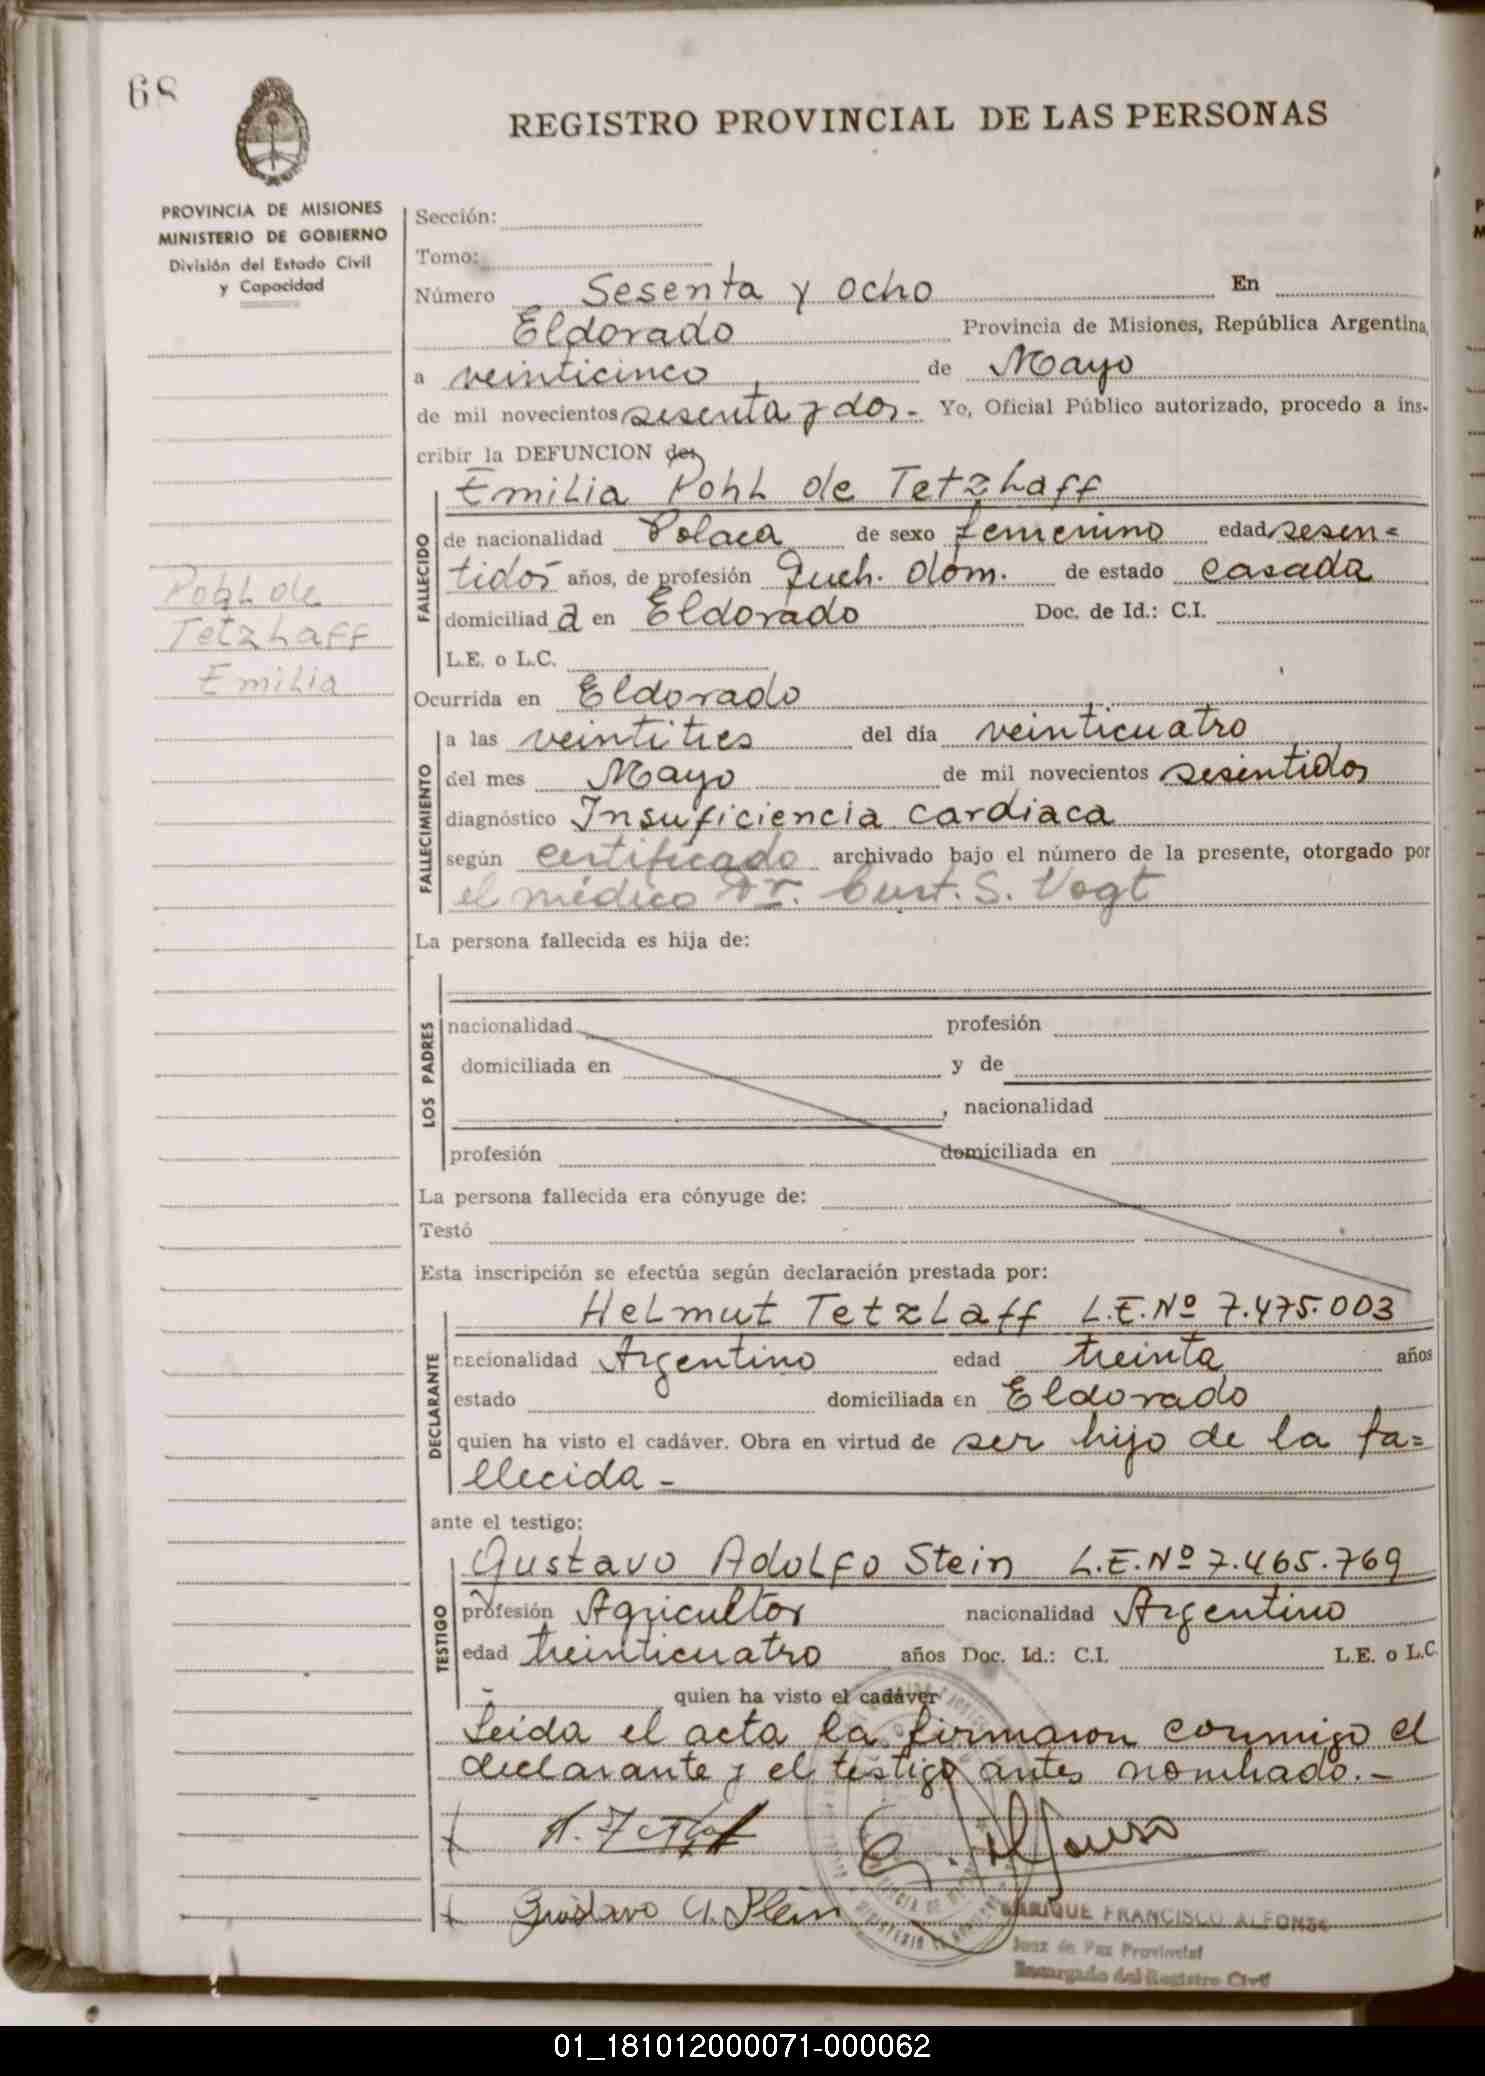 68
REGISTRO PROVINCIAL DE LAS PERSONAS
PROVINCIA DE MISIONES
MINISTERIO DE GOBIERNO
División del Estado Civil
y Capacidad
Sección:
Tomo:
Número Sesenta y ocho En
Eldorado Provincia de Misiones, República Argentina,
a veinticinco de Mayo
de mil novecientos sesenta y dos.- Yo, Oficial Público autorizado, procedo a ins-
cribir la DEFUNCION de
Emilia Pohl de Tetzhaff
FALLECIDO
de nacionalidad Polaca de sexo femenino edad sesen=
tidos años, de profesión Queh. dom. de estado casada
domiciliad a en Eldorado Doc. de Id.: C.I.
L.E. o L.C.
Pohl de
Tetzhaff
Emilia
Ocurrida en Eldorado
FALLECIMIENTO
a las veintitres del día veinticuatro
del mes Mayo de mil novecientos sesentidos
diagnóstico Insuficiencia cardiaca
según certificado archivado bajo el número de la presente, otorgado por
el médico Dr. Curt. S. Vogt
La persona fallecida es hija de:
LOS PADRES
nacionalidad profesión
domiciliada en y de
, nacionalidad
profesión domiciliada en
La persona fallecida era cónyuge de:
Testó
Esta inscripción se efectúa según declaración prestada por:
Helmut Tetzlaff L.E.Nº 7.475.003
DECLARANTE
nacionalidad Argentino edad treinta años
estado domiciliada en Eldorado
quien ha visto el cadáver. Obra en virtud de ser hijo de la fa=
llecida -
ante el testigo:
Gustavo Adolfo Stein L.E.Nº 7.465.769
TESTIGO
profesión Agricultor nacionalidad Argentino
edad treinticuatro años Doc. Id.: C.I. L.E. o L.C.
quien ha visto el cadáver
Leida el acta la firmaron conmigo el
declarante y el testigo antes nombrado.-
Gustavo A. Stein
ENRIQUE FRANCISCO ALFONSO
Juez de Paz Provincial
Encargado del Registro Civil
01_181012000071-000062